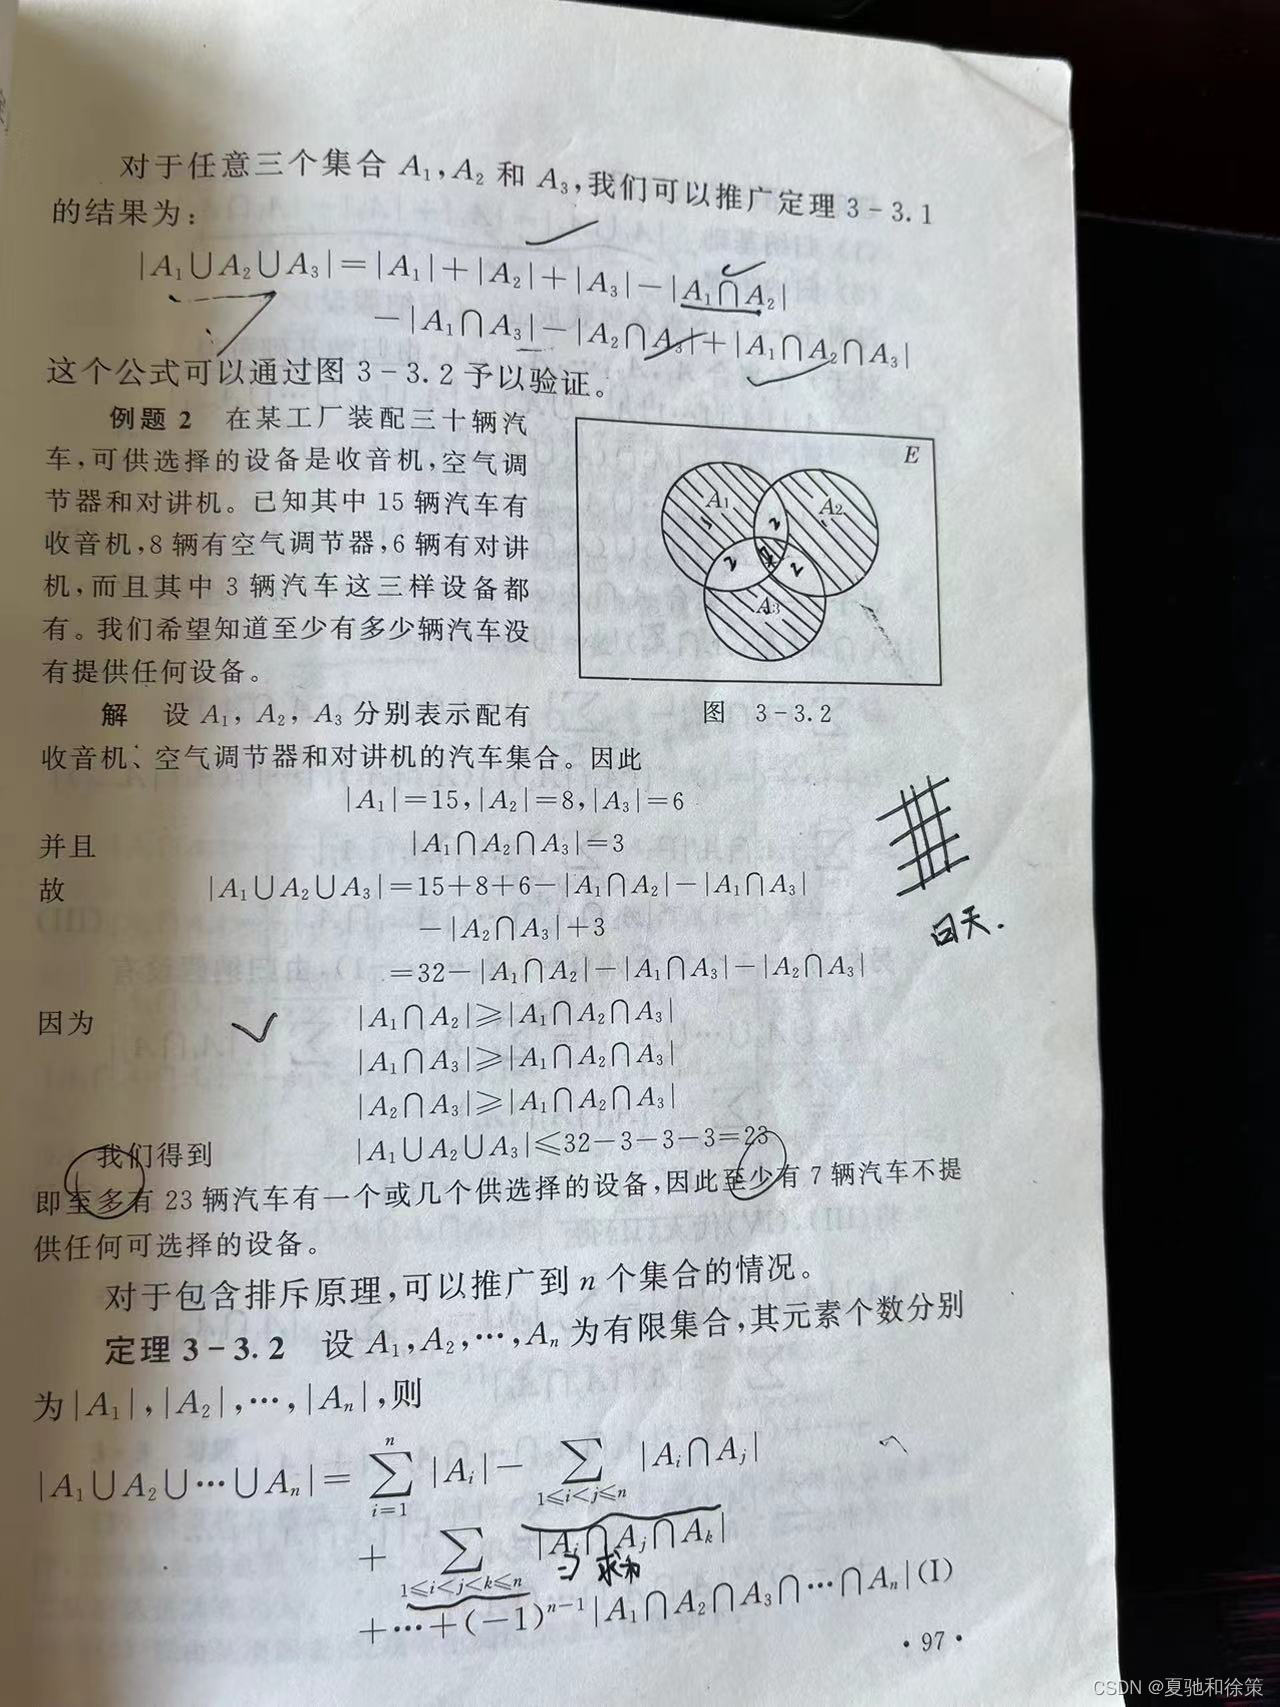 对于任意三个集合 A₁,A₂ 和 A₃,我们可以推广定理 3-3.1
的结果为:
|A₁∪A₂∪A₃|=|A₁|+|A₂|+|A₃|-|A₁∩A₂|
-|A₁∩A₃|-|A₂∩A₃|+|A₁∩A₂∩A₃|
这个公式可以通过图 3-3.2 予以验证。
例题 2 在某工厂装配三十辆汽
车,可供选择的设备是收音机,空气调
节器和对讲机。已知其中 15 辆汽车有
收音机,8 辆有空气调节器,6 辆有对讲
机,而且其中 3 辆汽车这三样设备都
有。我们希望知道至少有多少辆汽车没
有提供任何设备。
E
A₁
A₂
2
2
2
A₃
图 3-3.2
解 设 A₁, A₂, A₃ 分别表示配有
收音机、空气调节器和对讲机的汽车集合。因此
|A₁|=15,|A₂|=8,|A₃|=6
并且 |A₁∩A₂∩A₃|=3
故 |A₁∪A₂∪A₃|=15+8+6-|A₁∩A₂|-|A₁∩A₃|
-|A₂∩A₃|+3
=32-|A₁∩A₂|-|A₁∩A₃|-|A₂∩A₃|
因为 |A₁∩A₂|⩾|A₁∩A₂∩A₃|
|A₁∩A₃|⩾|A₁∩A₂∩A₃|
|A₂∩A₃|⩾|A₁∩A₂∩A₃|
我们得到 |A₁∪A₂∪A₃|⩽32-3-3-3=23
即至多有 23 辆汽车有一个或几个供选择的设备,因此至少有 7 辆汽车不提
供任何可选择的设备。
对于包含排斥原理,可以推广到 n 个集合的情况。
定理 3-3.2 设 A₁,A₂,⋯,Aₙ 为有限集合,其元素个数分别
为|A₁|,|A₂|,⋯,|Aₙ|,则
|A₁∪A₂∪⋯∪Aₙ|= ∑ⁿᵢ₌₁ |Aᵢ|- ∑1⩽i<j⩽n |Aᵢ∩Aⱼ|
+ ∑1⩽i<j<k⩽n |Aᵢ∩Aⱼ∩Aₖ|
求和
+⋯+(-1)ⁿ⁻¹|A₁∩A₂∩A₃∩⋯∩Aₙ|(I)
·97·
CSDN @夏驰和徐策